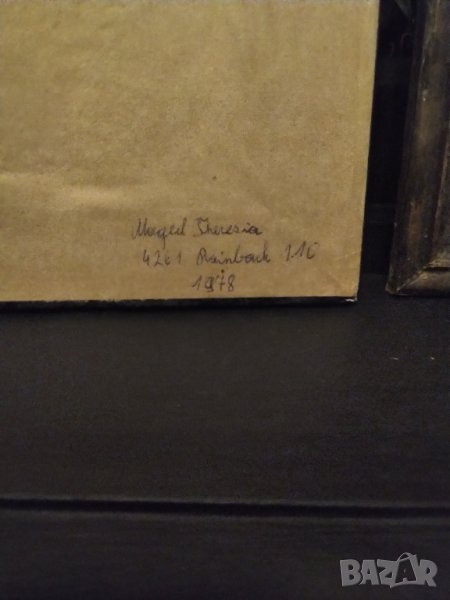 Maged Theresia
4261 Rainbach 116
1978
BAZAR